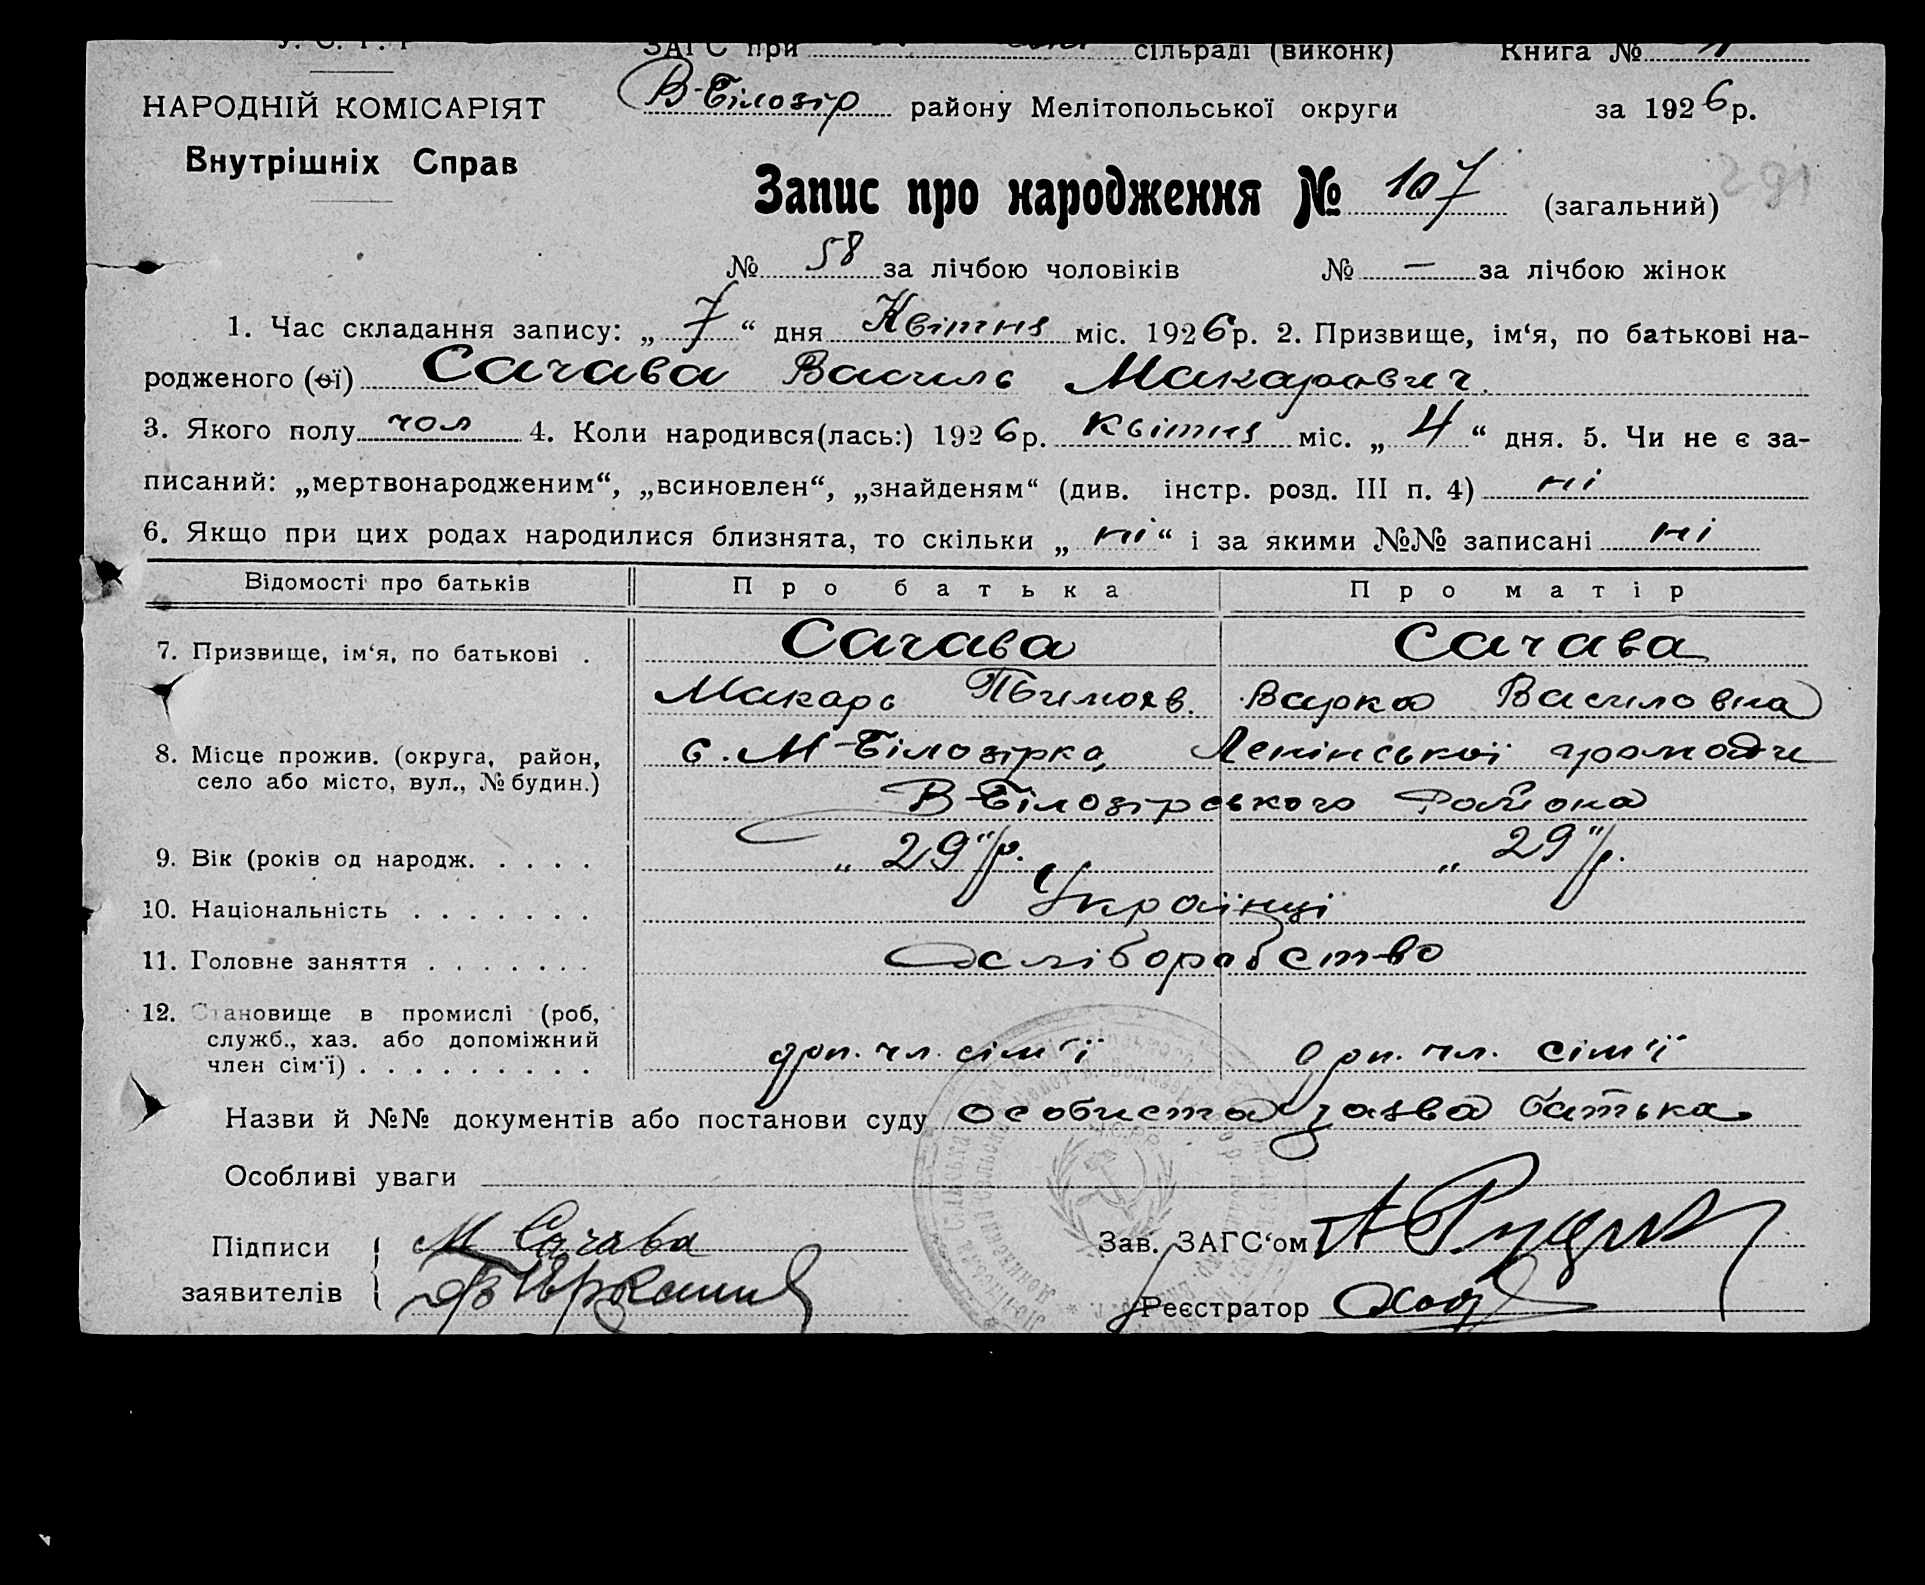 У. С. Р. Р
ЗАГС при сільраді (виконк) Книга №
В-Білозір району Мелітопольської округи за 1926 р.
НАРОДНІЙ КОМІСАРІЯТ
Внутрішніх Справ
Запис про народження № 107 (загальний)
№ 58 за лічбою чоловіків № — за лічбою жінок
1. Час складання запису: „ 7 “ дня Квітня міс. 1926 р. 2. Призвище, ім‘я, по батькові на-
родженого (ої) Сачава Василь Макарович.
3. Якого полу чол 4. Коли народився(лась:) 1926 р. квітня міс. „ 4 “ дня. 5. Чи не є за-
писаний: „мертвонародженим“, „всиновлен“, „знайденям“ (див. інстр. розд. III п. 4) ні
6. Якщо при цих родах народилися близнята, то скільки „ ні “ і за якими №№ записані ні
Відомості про батьків Про батька Про матір
7. Призвище, ім‘я, по батькові . Сачава Сачава
Макарь Варка Василовна
8. Місце прожив. (округа, район, с. М-Білозірка, Ленінської громади
село або місто, вул., № будин.) В-Білозірського Района
9. Вік (років од народж. . . . . „ 29 "/р. „ 29 "/р.
10. Національність . . . . . . . Українці
11. Головне заняття . . . . . . . хліборобство
12. Становище в промислі (роб,
служб., хаз. або допоміжний
член сім‘ї) . . . . . . . . . доп. чл. сім'ї доп. чл. сім'ї
Назви й №№ документів або постанови суду особиста заява батька
Особливі уваги
Підписи М Сачава Зав. ЗАГС‘ом
заявителів Реєстратор